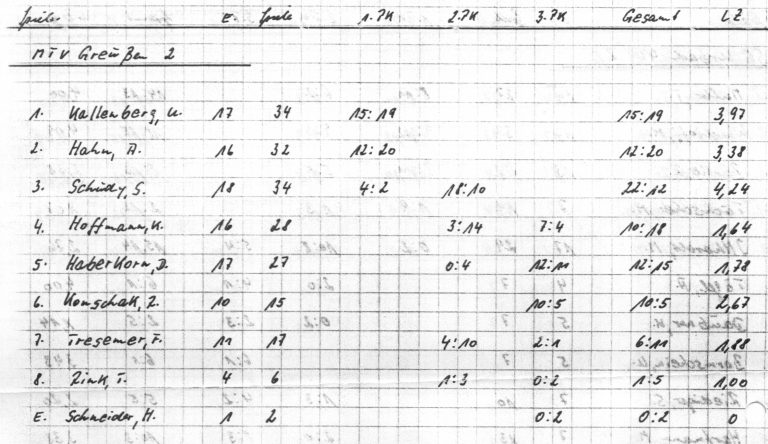 Spieler E. Spiele 1.PK 2.PK 3.PK Gesamt LZ
MTV Greußen 2
1. Kallenberg, U. 17 34 15:19 15:19 3,97
2. Hahn, A. 16 32 12:20 12:20 3,38
3. Schüdy, S. 18 34 4:2 18:10 22:12 4,24
4. Hoffmann, K. 16 28 3:14 7:4 10:18 1,64
5. Haberkorn, D. 17 27 0:4 12:11 12:15 1,78
6. Konschak, Z. 10 15 10:5 10:5 2,67
7. Tresemer, F. 11 17 4:10 2:1 6:11 1,88
8. Zink, T. 4 6 1:3 0:2 1:5 1,00
E. Schneider, H. 1 2 0:2 0:2 0